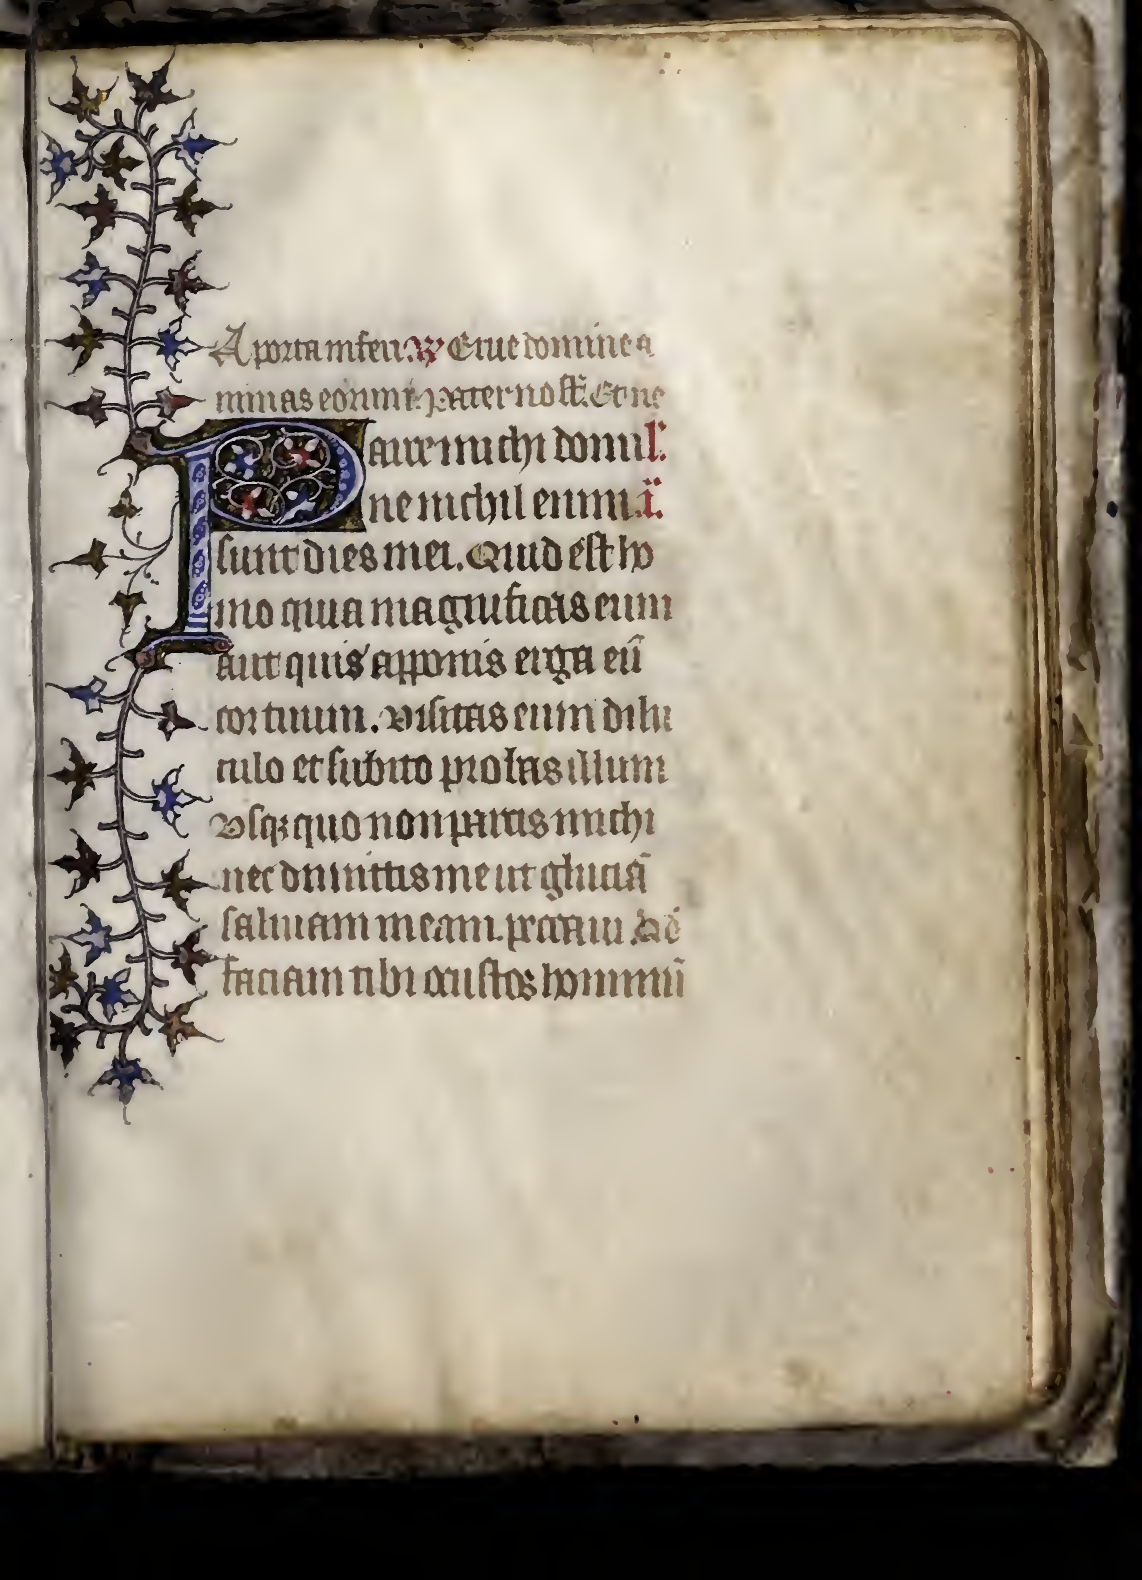 A porta inferi. ℟ Erue domine a
nimas eorum. Pater nostr̄. Et ne
Parce michi domi l'.
ne nichil enim .i.
sunt dies mei. Quid est ho
mo quia magnificas eum
aut quis apponis erga eū
cor tuum. Visitas eum dilu
culo et subito probas illum
Vsqꝫ quo non parcis michi
nec dimittis me ut gluciā
saliuam meam. peccaui.
faciam tibi o custos hominū